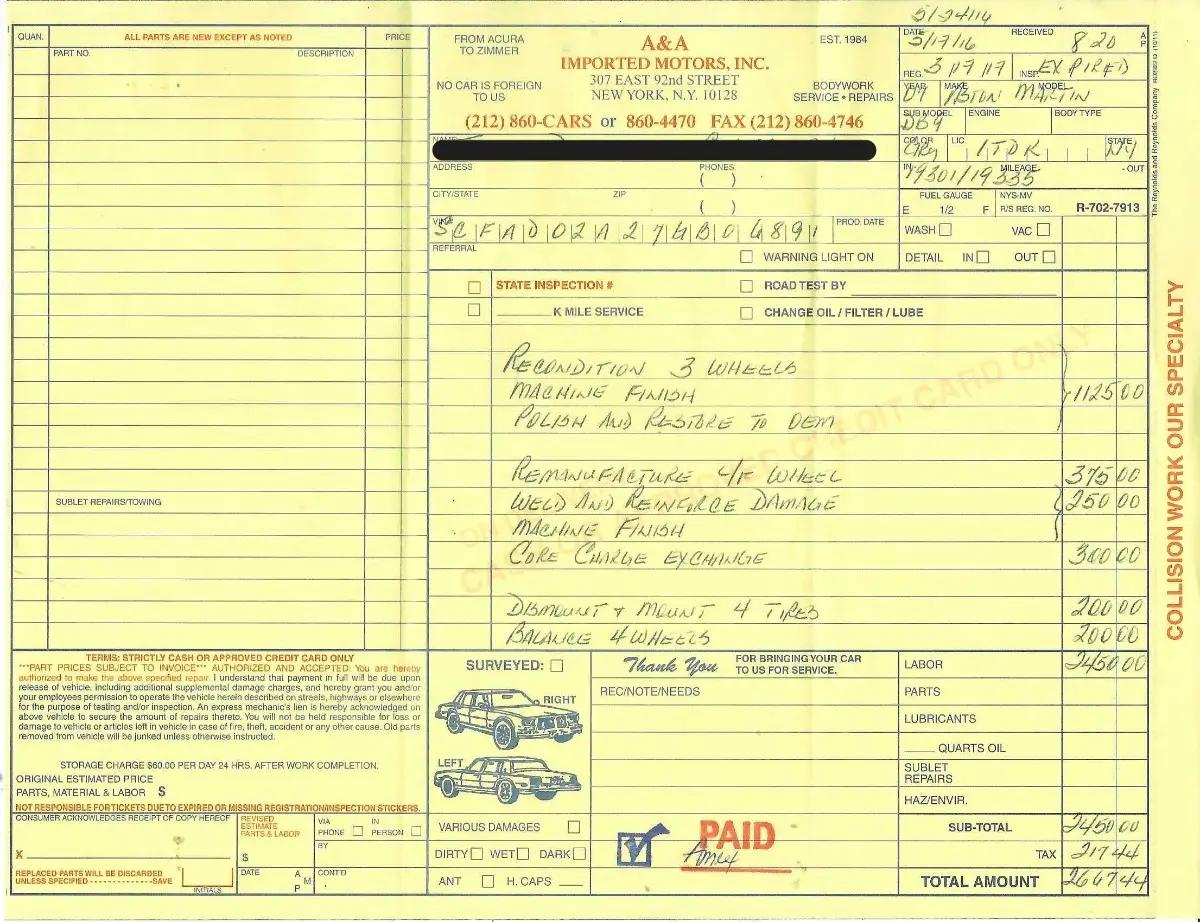 5/24/16
QUAN.
ALL PARTS ARE NEW EXCEPT AS NOTED
PRICE
PART NO.
DESCRIPTION
SUBLET REPAIRS/TOWING
FROM ACURA
TO ZIMMER
NO CAR IS FOREIGN
TO US
A&A
IMPORTED MOTORS, INC.
307 EAST 92nd STREET
NEW YORK, N.Y. 10128
EST. 1984
BODYWORK
SERVICE • REPAIRS
(212) 860-CARS or 860-4470 FAX (212) 860-4746
NAME
ADDRESS
PHONES
( )
CITY/STATE
ZIP
( )
VIN#
SCFAD02A274B06891
PROD. DATE
REFERRAL
WARNING LIGHT ON
DATE 5/17/16
RECEIVED 8 20 A P
REG. 3/17/17
INSP. EXPIRED
YEAR 07 MAKE ASTON MARTIN MODEL
SUB MODEL DB9
ENGINE
BODY TYPE
COLOR GRey
LIC. 1TDK
STATE NY
IN- 19301/19335 MILEAGE - OUT
FUEL GAUGE
E 1/2 F
NYS-MV
R/S REG. NO. R-702-7913
WASH VAC
DETAIL IN OUT
The Reynolds and Reynolds Company
STATE INSPECTION #
ROAD TEST BY
K MILE SERVICE
CHANGE OIL / FILTER / LUBE
RECONDITION 3 WHEELS
MACHINE FINISH 1125 00
POLISH AND RESTORE TO OEM
REMANUFACTURE L/F WHEEL 375 00
WELD AND REINFORCE DAMAGE 250 00
MACHINE FINISH
CORE CHARGE EXCHANGE 300 00
DISMOUNT + MOUNT 4 TIRES 200 00
BALANCE 4 WHEELS 200 00
CREDIT CARD ONLY
COLLISION WORK OUR SPECIALTY
TERMS: STRICTLY CASH OR APPROVED CREDIT CARD ONLY
***PART PRICES SUBJECT TO INVOICE*** AUTHORIZED AND ACCEPTED: You are hereby
authorized to make the above specified repair. I understand that payment in full will be due upon
release of vehicle, including additional supplemental damage charges, and hereby grant you and/or
your employees permission to operate the vehicle herein described on streets, highways or elsewhere
for the purpose of testing and/or inspection. An express mechanic's lien is hereby acknowledged on
above vehicle to secure the amount of repairs thereto. You will not be held responsible for loss or
damage to vehicle or articles left in vehicle in case of fire, theft, accident or any other cause. Old parts
removed from vehicle will be junked unless otherwise instructed.
STORAGE CHARGE $60.00 PER DAY 24 HRS. AFTER WORK COMPLETION.
ORIGINAL ESTIMATED PRICE
PARTS, MATERIAL & LABOR $
NOT RESPONSIBLE FOR TICKETS DUE TO EXPIRED OR MISSING REGISTRATION/INSPECTION STICKERS.
CONSUMER ACKNOWLEDGES RECEIPT OF COPY HEREOF
X
REPLACED PARTS WILL BE DISCARDED
UNLESS SPECIFIED - - - - - - - - - - - -SAVE
INITIALS
REVISED
ESTIMATE
PARTS & LABOR
$
DATE A M P
VIA
PHONE
IN
PERSON
BY
CONT'D
SURVEYED:
RIGHT
LEFT
VARIOUS DAMAGES
DIRTY WET DARK
ANT H. CAPS
Thank You
FOR BRINGING YOUR CAR
TO US FOR SERVICE.
REC/NOTE/NEEDS
PAID
Amex
LABOR 2450 00
PARTS
LUBRICANTS
QUARTS OIL
SUBLET
REPAIRS
HAZ/ENVIR.
SUB-TOTAL 2450 00
TAX 217 44
TOTAL AMOUNT 2667 44